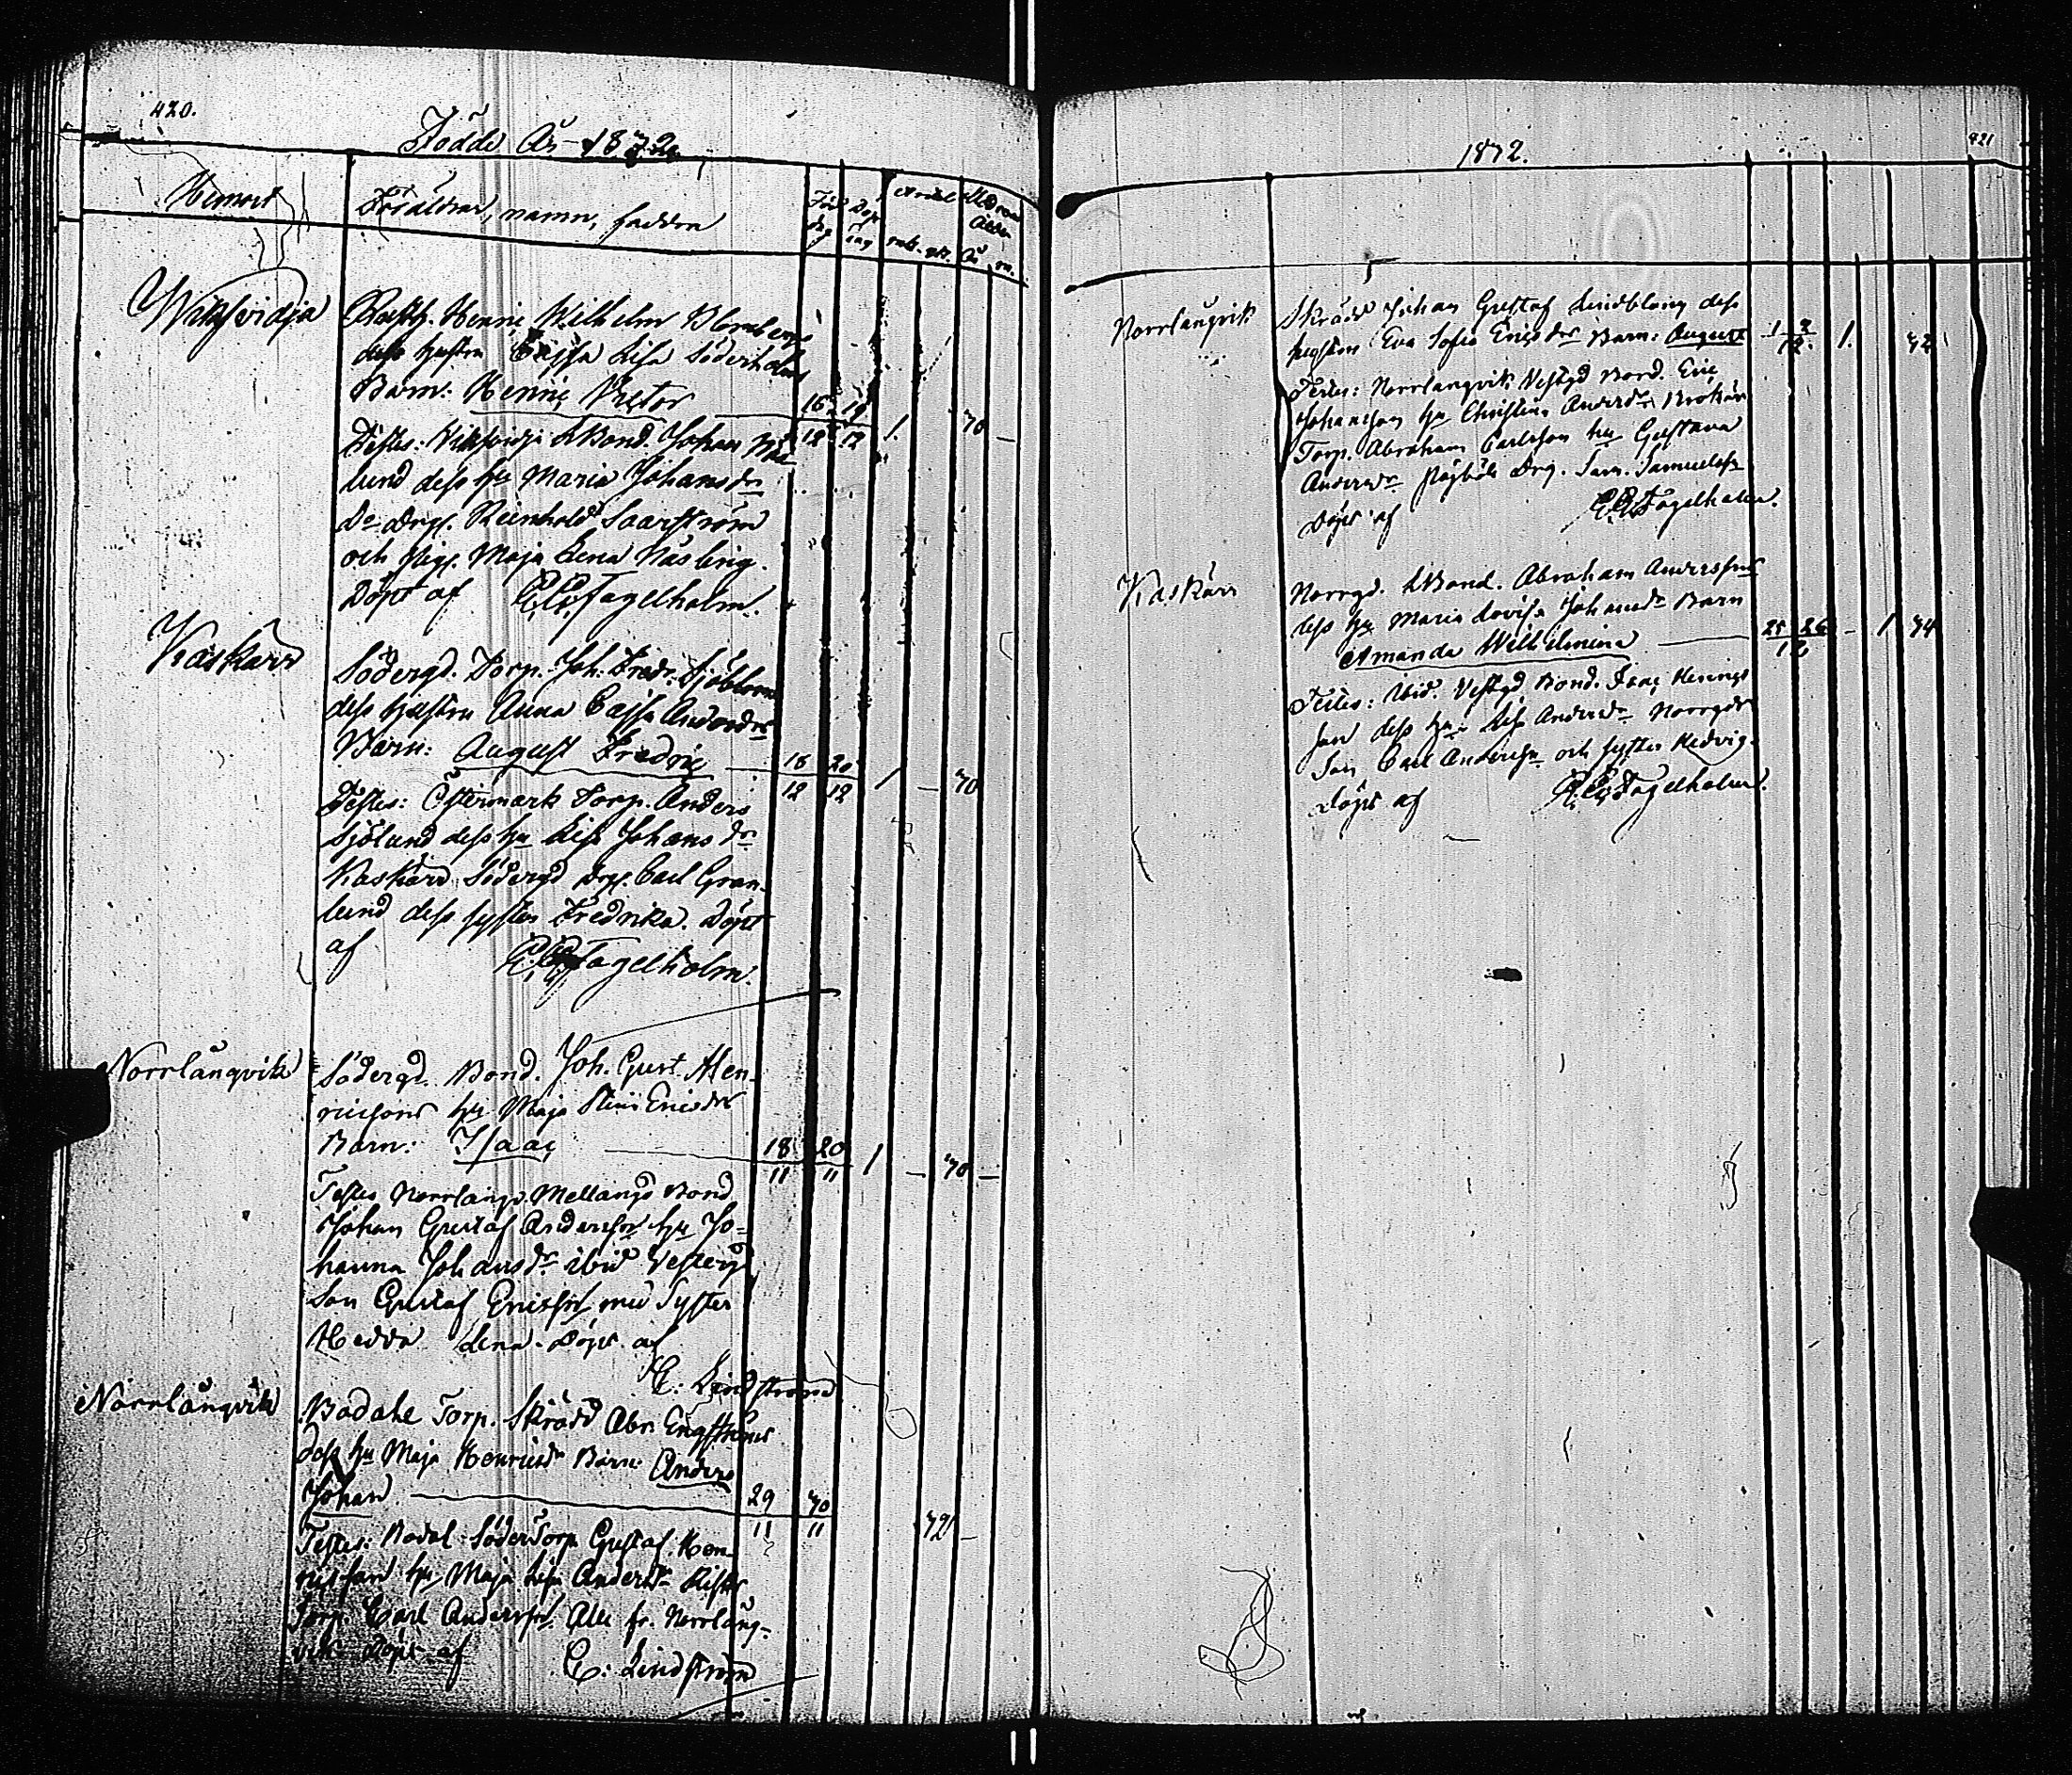 420.
Födde År 1872.
Hemort
Föräldrar, namn, faddra
Föd. dag
Döp. dag
Antal
Modrens Ålder
mk. qk. År m.
Wiksvidja
Henric Wilhelm Blomberg
dess hustru Cajsa Lisa Söderholm
Barn: Henric Victor
16/12 19/12 1. 70 –
Testes: Wiksvidja Bond. Johan
lund dess hu Maria Johansdr
Do Drg. Reinhold Saarström
och Pig. Maja Lena Näsling.
Döpt af Fagelholm.
Kaskärr
Södergd. Torp. Joh. Fredr. Sjöblom
dess hustru Anna Cajsa Andersdr
Barn: August Fredric
18/12 20/12 1 – 70
Testes: Östermark Torp. Anders
Sjölund dess hu Lisa Johansdr
Kaskärr Södergd Drg. Carl Gran-
lund dess syster Fredrika. Döpt
af Fagelholm.
Norrlångvik
Södergd. Bond. Joh. Gust. Hen-
ricsons hu Maja Stina Ericsdr
Barn: Isaac
18/11 20/11 1 – 70 –
Testes Norrlångv. Mellangd Bond
Johan Gustaf Andersson hu Jo-
hanna Johansdr ibid Vestergd
Son Gustaf Ericsson med Syster
Hedda Lena. Döpt af
C: Lindström
Norrlångvik
Badahl Torp. Skrädd Abr. Engströms
dess hu Maja Henricsdr Barn: Anders
Johan
29/11 30/11 72 –
Testes: Badal Söder Torp Gustaf Hen-
ricsson hu Maja Lisa Andersdr
Torp. Carl Andersson. Alla fr. Norrlång-
vik. Döpt af C: Lindström
421
1872.
Norrlångvik
Skrädd Johan Gustaf Lindblom dess
hustru Eva Sofia Ericsdr Barn: August
1 2/12. 1. 72
Testes: Norrlångvik Vestgd Bond. Eric
Johansson hu Christina Andersdr
Torp. Abraham Carlsson hu Gustava
Andersdr Drg. Sam. Samuelsson
Döpt af Fagelholm.
Kaskärr
Norrgd. Bond. Abraham Anderssons
dess hu Maria Lovisa Johansdr Barn
Amanda Wilhelmina
25 26/12 – 1 74
Testes: ibid. Vestgd Bond. Isac Henrics
son dess hu Lisa Andersdr Norrgds
Son Carl Andersson och syster Hedvig.
Döpt af Fagelholm.